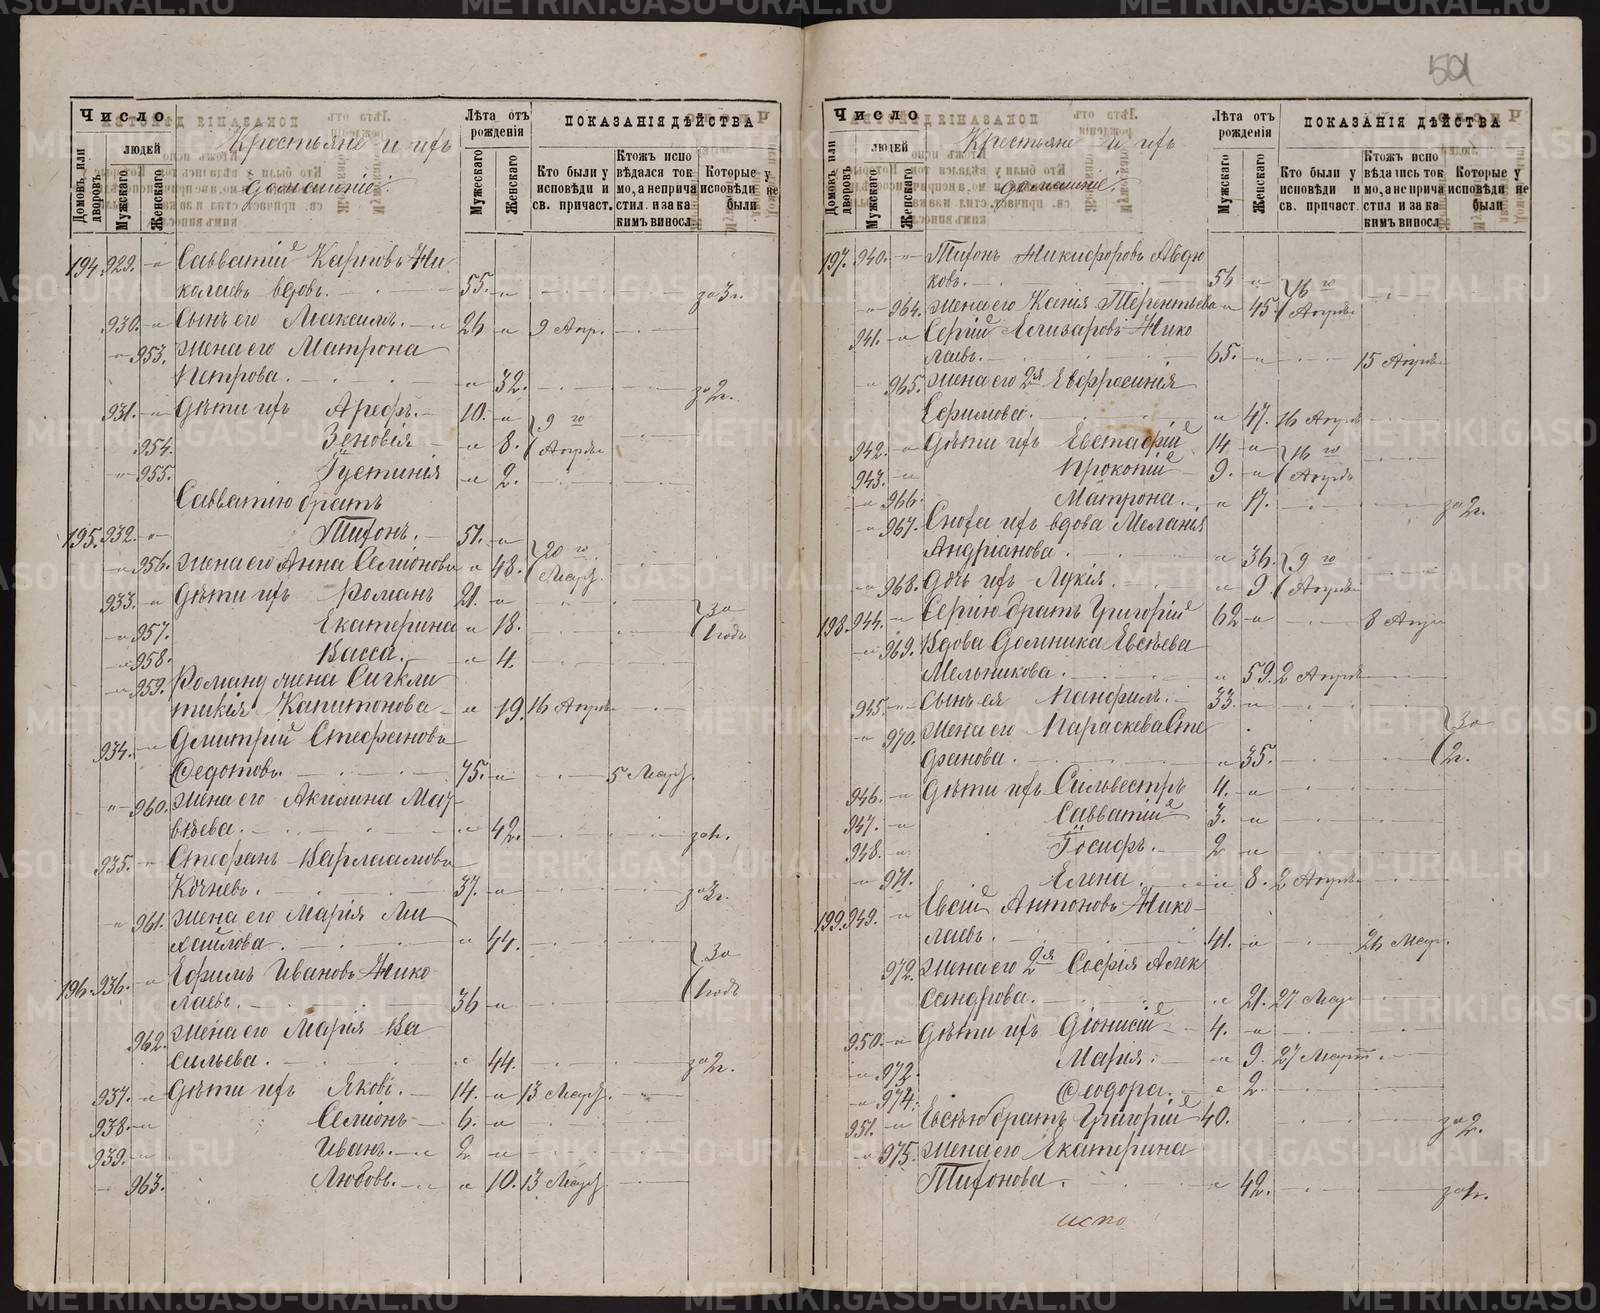 Число
людей
Домовъ или дворовъ
Мужскаго
Женскаго
Крестьяне и ихъ
домашніе:
Лѣта отъ рожденія
Мужескаго
Женскаго
ПОКАЗАНІЯ ДѢЙСТВА
Кто были у исповѣди и св. причаст.
Ктожъ исповѣдался токмо, а не причастил. и за каким винosл.
Которые у исповѣди не были
194. 929. -"- Савватій Карповъ Ни-
колаевъ вдовъ. 55. -"- за 3 г.
930. -"- Сынъ его Максимъ. 26 -"- 9 Апр.
-"- 953. Жена его Матрона
Петрова. -"- 32. за 2 г.
931. -"- Дѣти ихъ Арефъ. 10. -"- 9 го
954. Зеновія -"- 8. Апрѣл
-"- 955. Іустинія -"- 2.
Савватію братъ
195. 932. -"- Тихонъ. 51. -"-
-"- 956. Жена его Анна Семіонова -"- 48. 20 го Март.
933. -"- Дѣти ихъ Романъ 21. -"-
-"- 957. Екатерина -"- 18. за 1 годъ
-"- 958. Васса. -"- 4.
-"- 959. Роману жена Сигкли-
тикія Капитонова -"- 19. 16 Апрѣл
934. -"- Димитрій Стефановъ
Федотовъ. 75. -"- 5 Март.
-"- 960. Жена его Акилина Мат-
вѣева. -"- 42. за 1 г.
935. -"- Стефанъ Варлаамовъ
Кочневъ. 37. -"- за 3 г.
-"- 961. Жена его Марія Ми-
хайлова. -"- 44. за
196. 936. -"- Ефимъ Ивановъ Нико-
лаевъ. 36 -"- 1 годъ
962. Жена его Марія Ва-
сильева. -"- 44. за 2 г.
937. -"- Дѣти ихъ Яковъ. 14. -"- 13 Март.
938. -"- Семіонъ 6. -"-
939. -"- Иванъ. 2 -"-
-"- 963. Любовь. -"- 10. 13 Март.
501
Число
людей
Домовъ или дворовъ
Мужскаго
Женскаго
Крестьяне и ихъ
домашніе:
Лѣта отъ рожденія
Мужескаго
Женскаго
ПОКАЗАНІЯ ДѢЙСТВА
Кто были у исповѣди и св. причаст.
Ктожъ исповѣдались токмо, а не причастил. и за каким винosл.
Которые у исповѣди не были
197. 940. -"- Тихонъ Никифоровъ Авдю-
ковъ. 56 -"- 16 го
-"- 964. Жена его Ксенія Терентьева -"- 45. Апрѣл
941. -"- Сергій Елизаровъ Нико-
лаевъ. 65. -"- 15 Апрѣл
-"- 965. Жена его 2я Евфросинія
Ефимова. -"- 47. 16 Апрѣл
942. -"- Дѣти ихъ Евстафій 14. -"- 16 го
943. -"- Прокопій 9. -"- Апрѣл
-"- 966. Матрона. -"- 17. за 2 г.
-"- 967. Сноха ихъ вдова Меланія
Андріанова. -"- 36. 9 го
-"- 968. Дочь ихъ Лукія. -"- 9. Апрѣл
198. 944. -"- Сергію братъ Григорій 62 -"- 8 Апрѣ
-"- 969. Вдова Домника Евсѣева
Мельникова. -"- 59. 2 Апрѣл
945. -"- Сынъ ея Панфилъ. 33. -"-
-"- 970. Жена его Параскева Сте-
фанова. -"- 35. за 2 г.
946. -"- Дѣти ихъ Сильвестръ 4. -"-
947. -"- Савватій 3. -"-
948. -"- Іосифъ. 2 -"-
-"- 971. Елена. -"- 8. 2 Апрѣл
199. 949. -"- Евсій Антоновъ Нико-
лаевъ. 41. -"- 26 Март.
972. Жена его 2я Софія Алек-
сандрова. -"- 21. 27 Мар
950. -"- Дѣти ихъ Діонисій 4. -"-
-"- 972. Марія: -"- 9. 27 Март.
-"- 974. Феодора. -"- 2.
951. -"- Евсѣю братъ Григорій 40. за 2.
-"- 975. Жена его Екатерина
Тихонова. -"- 42. за 1 г.
испо